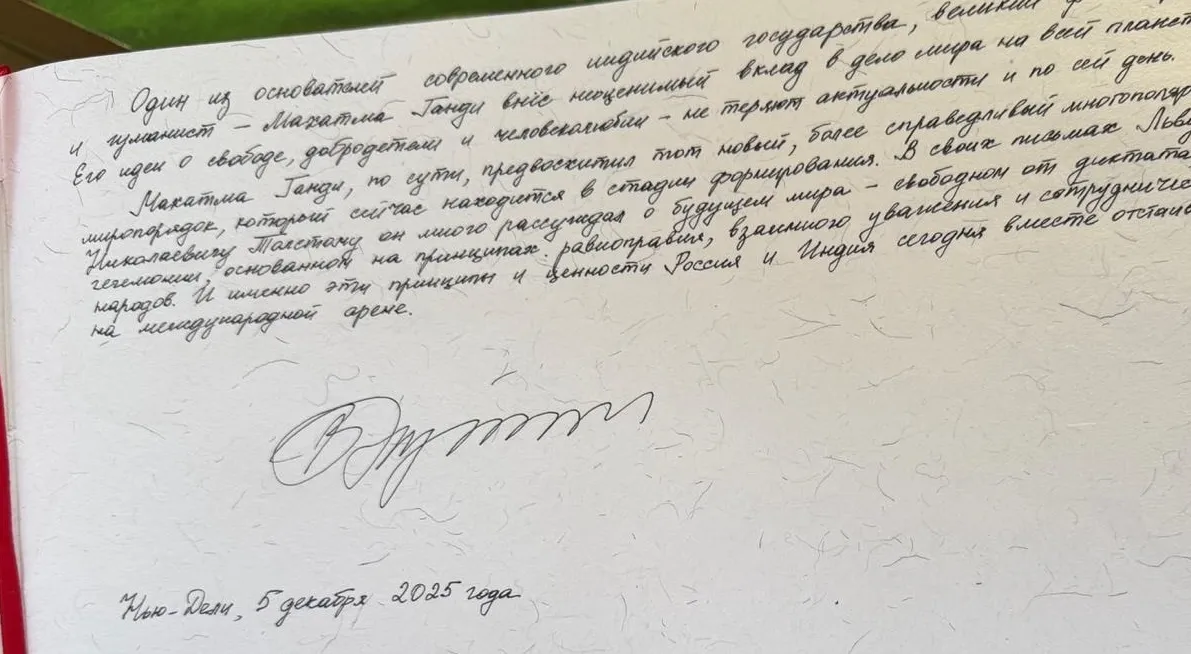 Один из основателей современного индийского государства, великий
и гуманист – Махатма Ганди внёс неоценимый вклад в дело мира на всей планете
Его идеи о свободе, добродетели и человеколюбии – не теряют актуальности и по сей день.
Махатма Ганди, по сути, предвосхитил тот новый, более справедливый многополяр
миропорядок, который сейчас находится в стадии формирования. В своих письмах Льву
Николаевичу Толстому он много рассуждал о будущем мира – свободном от диктата
гегемонии, основанном на принципах равноправия, взаимного уважения и сотрудниче
народов. И именно эти принципы и ценности Россия и Индия сегодня вместе отстаи
на международной арене.
Нью-Дели, 5 декабря 2025 года